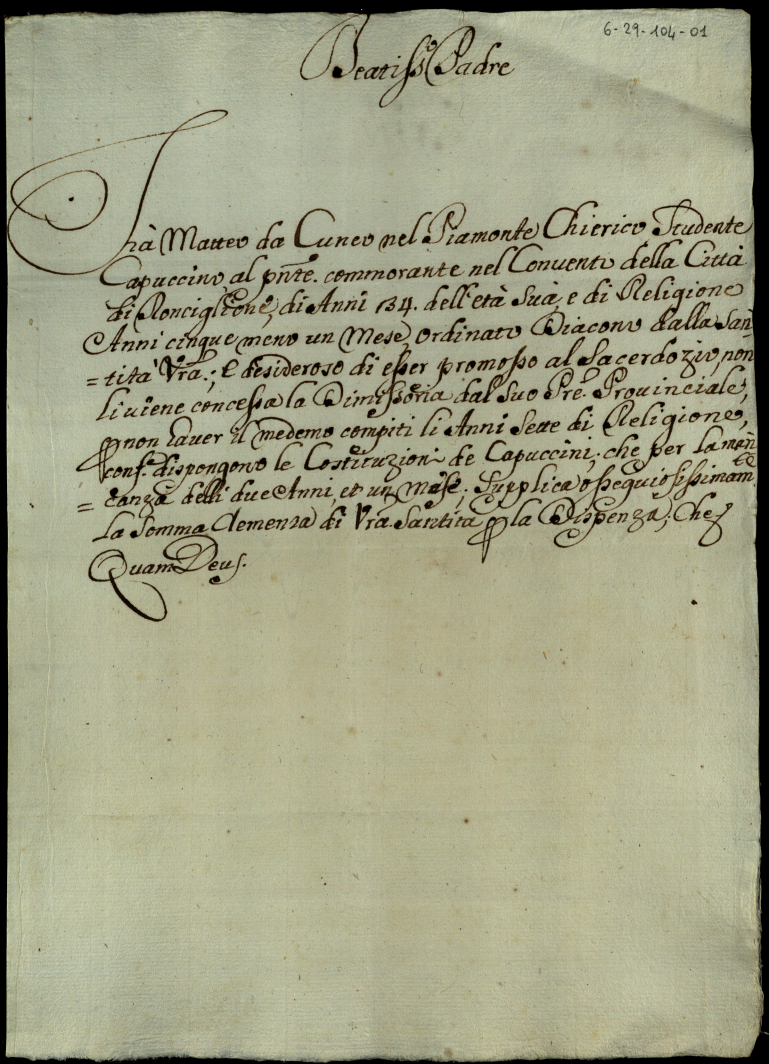 6-29-104-01
Beatiss.o Padre
Frà Matteo da Cuneo nel Piamonte Chierico Studente
Capuccino, al pñte. commorante nel Convento della Città
di Ronciglione, di Anni 34. dell'età Sua, e di Religione
Anni cinque meno un Mese, Ordinato Diacono dalla San
=tità Vra.; E desideroso di esser promosso al Sacerdozio, non
li viene concessa la Dimissoria dal Suo Pre. Provinciale,
p non haver il medemo compiti li Anni Sette di Religione,
conf.e dispongono le Costituzioni de Capuccini; che per la man
=canza delli due Anni, et un Mese; Supplica ossequiosissimam.te
la Somma Clemenza di Vra. Santità p la Dispenza; Che
Quam Deus.